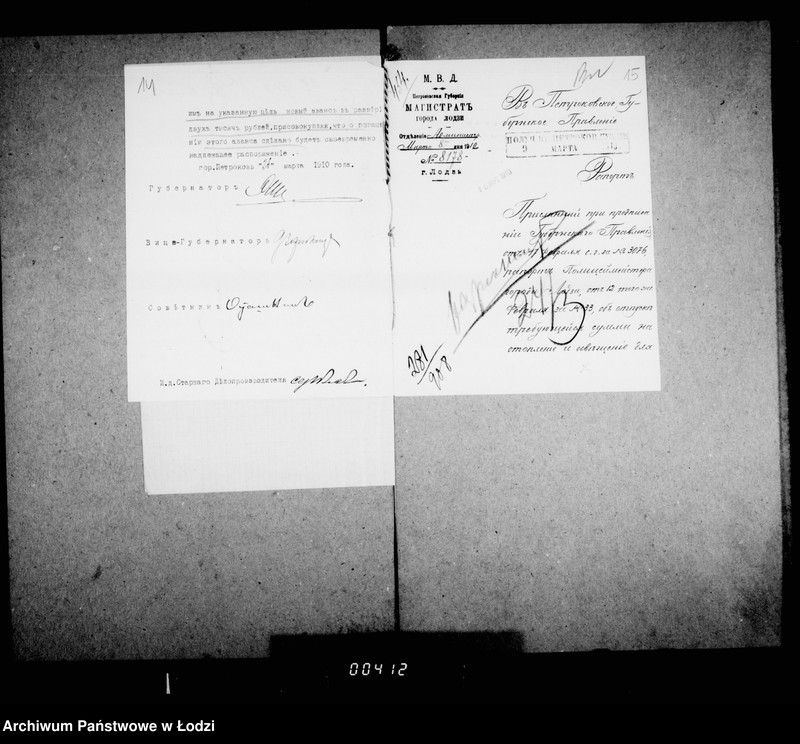 14
имъ на указанную цѣль новый авансъ въ размѣрѣ
двухъ тысячъ рублей, присовокупляя, что о погаше-
ніи этого аванса сдѣлано будетъ своевременно
надлежащее распоряженіе.-
гор. Петроковъ " " марта 1910 года.
Губернаторъ
Вице-Губернаторъ
Совѣтникъ
И.д. Старшаго Дѣлопроизводителя
15
М. В. Д.
Петроковская Губернія
МАГИСТРАТЪ
ГОРОДА ЛОДЗИ
Отдѣленіе
Марта 8 дня 1910
№ 8178
г. Лодзь
Въ Петроковское Гу-
бернское Правленіе
9 МАРТА
Рапортъ
Присланный при предписа-
ніе Губернскаго Правленія
отъ 17 февраля с.г. за № 3076,
рапортъ Полицеймейстера
города Лодзи, отъ 12 того же
Февраля за № 33, объ отпускѣ
требующейся суммы на
отопленіе и освѣщеніе для
24/3
281/908
00412
Archiwum Państwowe w Łodzi